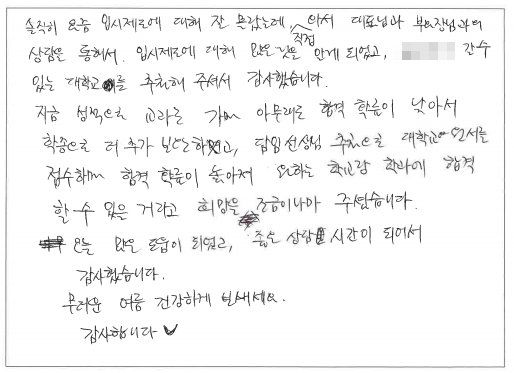 솔직히 요즘 입시제도에 대해 잘 몰랐는데, 직접 와서 대표님과 부원장님과의
상담을 통해서. 입시제도에 대해 많은 것을 알게 되었고, 갈수
있는 대학교를 추천해 주셔서 감사했습니다.
지금 성적으로 교과로 가면 아무래도 합격 확률이 낮아서
학종으로 더 추가 하였고, 담임선생님 추천으로 대학교 원서를
접수하면 합격 확률이 높아져 원하는 학교랑 학과에 합격
할 수 있을 거라고 희망을 조금이나마 주셨습니다.
오늘 많은 도움이 되었고, 좋은 상담 시간이 되어서
감사했습니다.
무더운 여름 건강하게 보내세요.
감사합니다